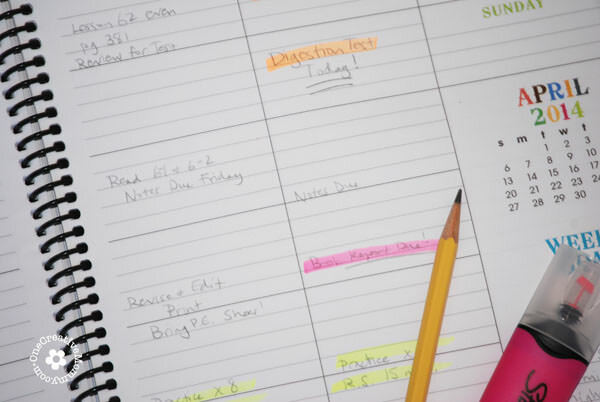 Lesson 62 even
pg 381
Review for Test
Digestion Test
Today!
Read 6-1 & 6-2
Notes Due Friday
Notes Due
Book Report Due!
Revise + Edit
Print
Bring P.E. Shoes!
Practice x 8
Practice x
R.S. 15 m
SUNDAY
APRIL
2014
s m t w t
1 2 3
6 7 8 9 10
13 14 15 16 17
20 21 22 23 24
27 28 29 30
WEE
OneCreativeMommy.com